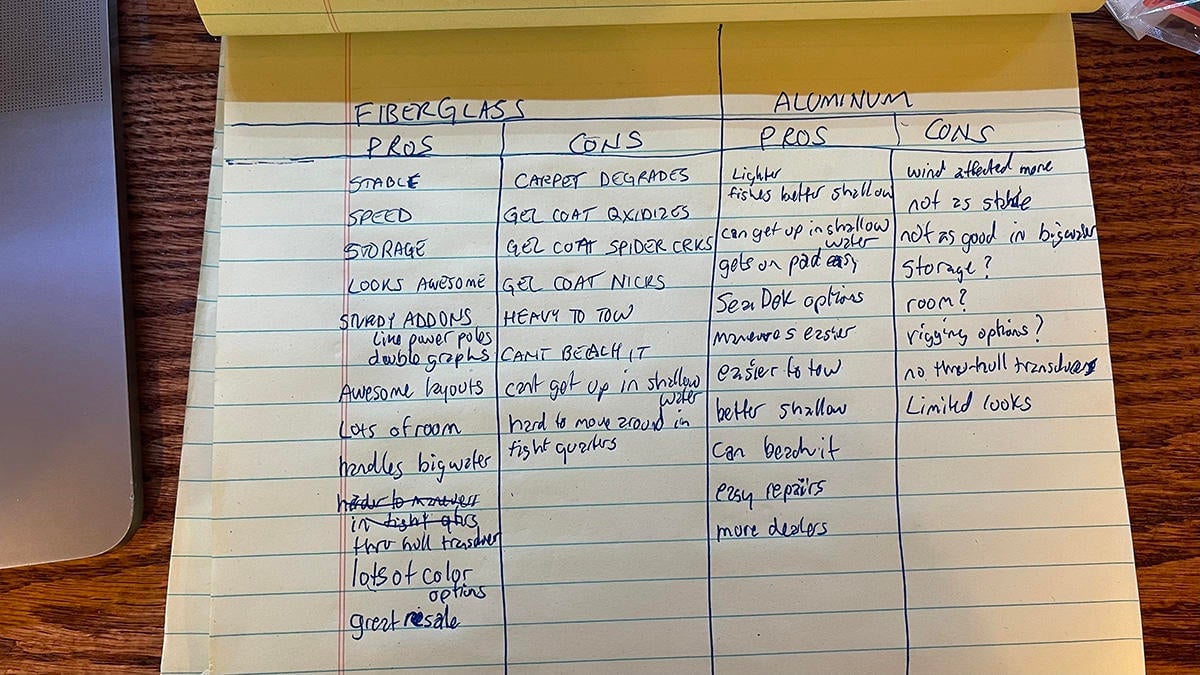 FIBERGLASS
PROS
STABLE
SPEED
STORAGE
LOOKS AWESOME
STURDY ADDONS
like power poles
double graphs
Awesome layouts
Lots of room
handles big water
harder to maneuver
in tight qtrs
thru hull transducer
lots of color
options
great resale
CONS
CARPET DEGRADES
GEL COAT OXIDIZES
GEL COAT SPIDER CRKS
GEL COAT NICKS
HEAVY TO TOW
CANT BEACH IT
cant get up in shallow
water
hard to move around in
tight quarters
ALUMINUM
PROS
Lighter
fishes better shallow
can get up in shallow
water
gets on pad easy
SeaDek options
easier
easier to tow
better shallow
Can beach it
easy repairs
more dealers
CONS
wind affected more
not as stable
not as good in big water
Storage?
room?
rigging options?
no thru-hull transducers
Limited looks